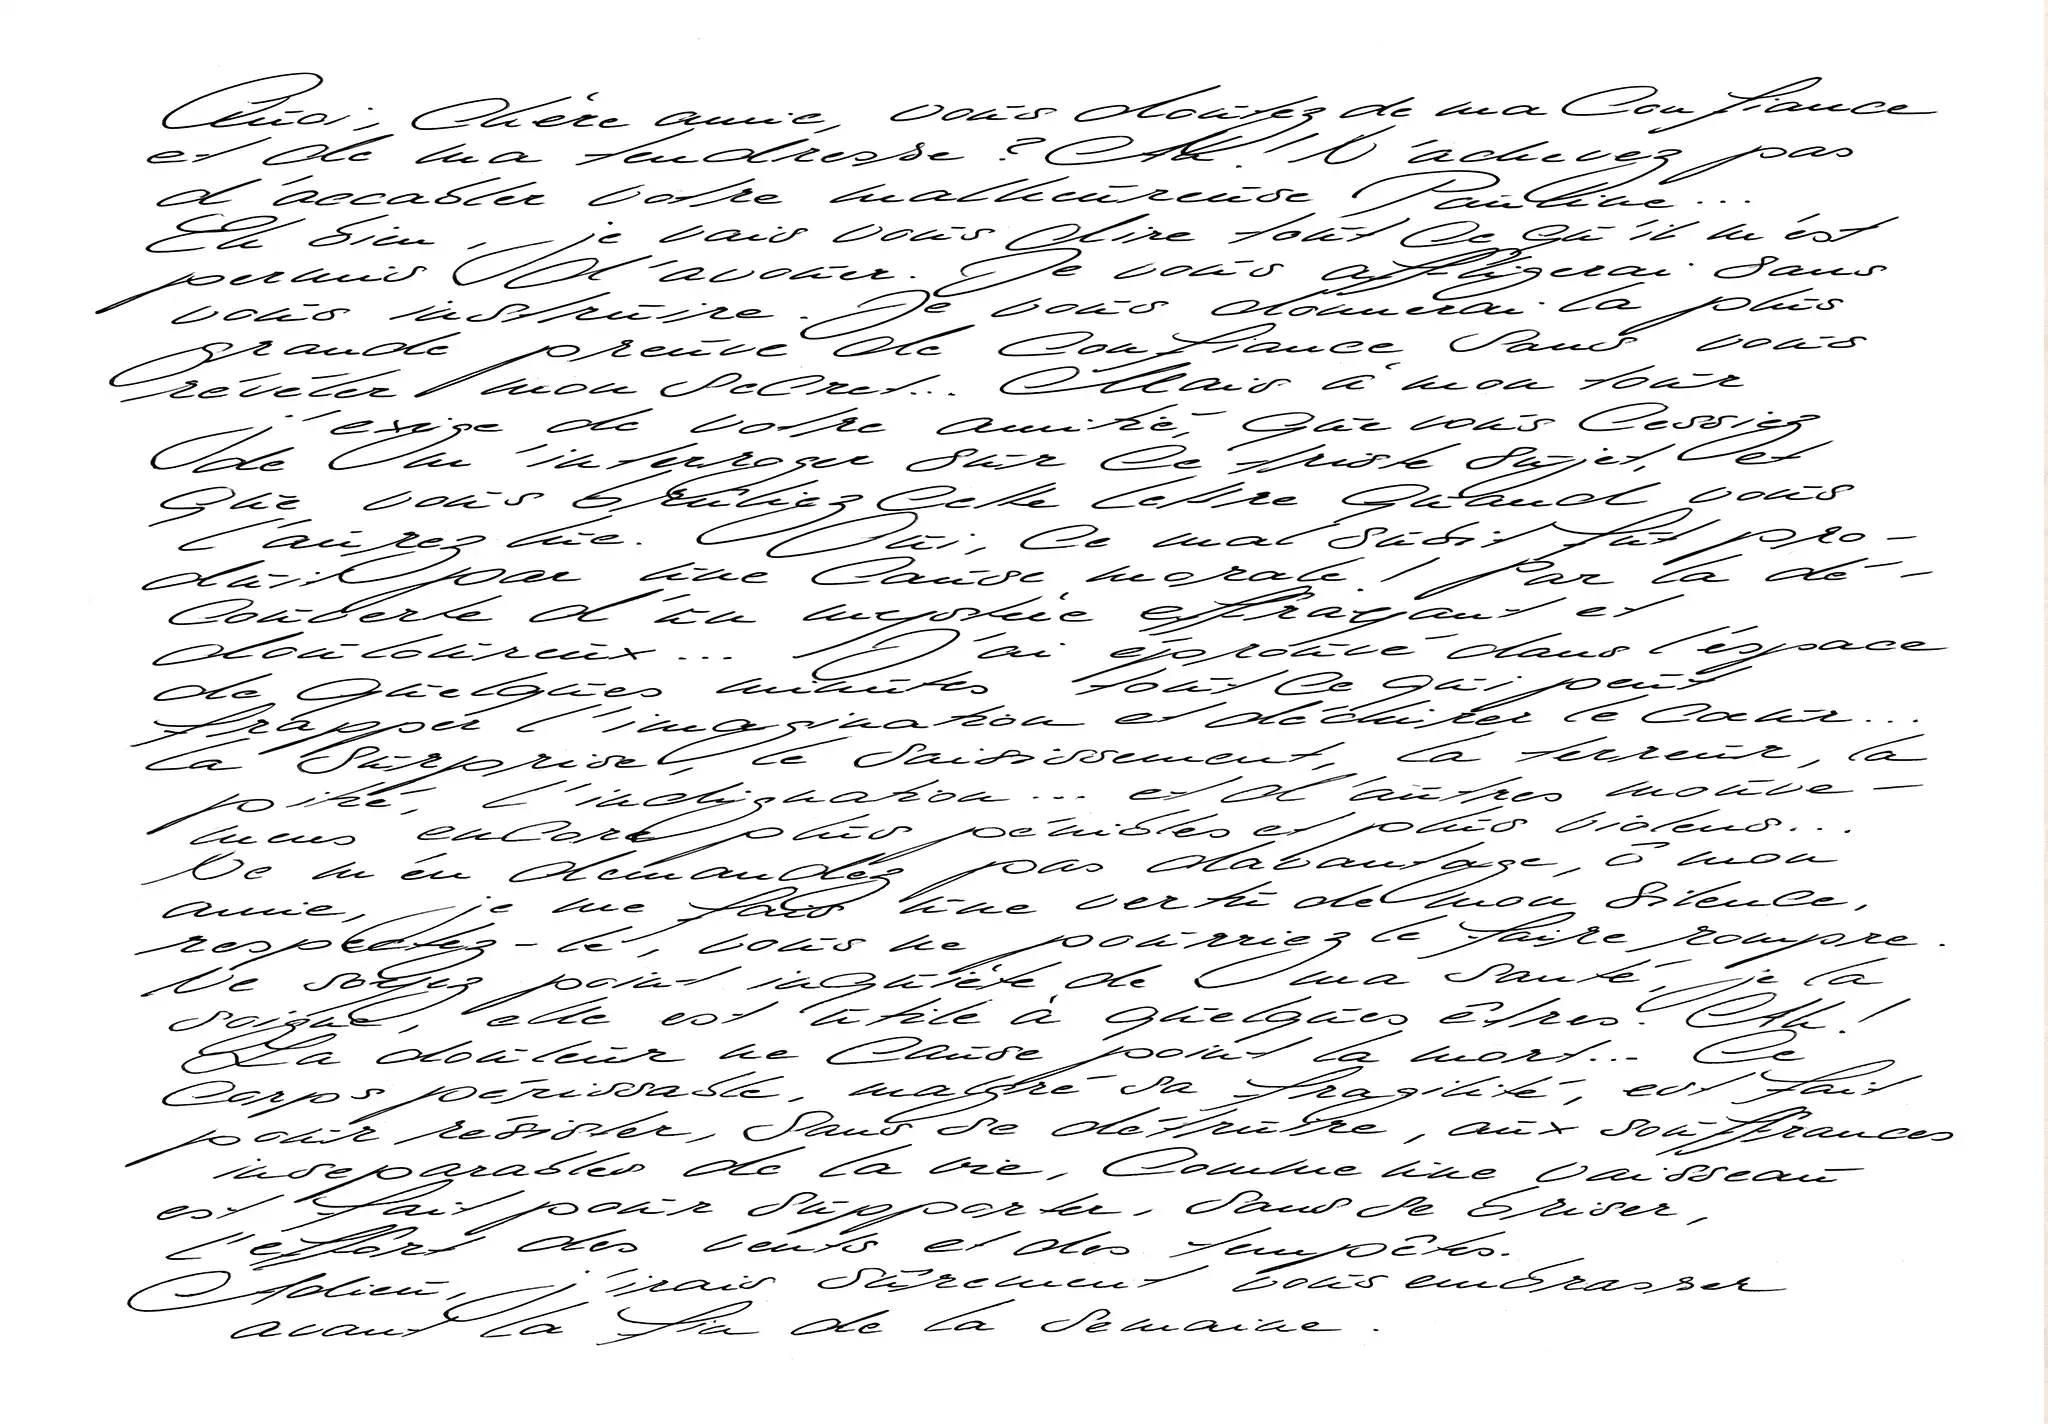 Quoi, Chère amie, vous doutez de ma Confiance
et de ma tendresse ? Ah ! N'achevez pas
d'accabler votre malheureuse Pauline...
Eh bien, je vais vous dire tout Ce qu'il m'est
permis d'avouer. Je vous affligerai sans
vous instruire. Je vous donnerai la plus
grande preuve de Confiance sans vous
révéler mon secret... Mais à mon tour
j'exige de votre amitié, que vous Cessiez
de m'interroger sur Ce triste sujet, et
que vous brûliez Cette lettre quand vous
l'aurez lue. Oui, Ce mal subit fut pro-
duit par une Cause morale ! Par la dé-
Couverte d'un mystère effrayant et
douloureux... J'ai éprouvé dans l'espace
de quelques minutes tout Ce qui peut
frapper l'imagination et déchirer le Cœur...
la surprise, le saisissement, la terreur, la
pitié, l'indignation... et d'autres mouve-
mens encore plus pénibles et plus violens...
Ne m'en demandez pas davantage, ô mon
amie, je me fais une vertu de mon silence,
respectez-le, vous ne pourriez le faire rompre.
Ne soyez point inquiète de ma santé, je la
soigne, elle est utile à quelques êtres. Ah !
La douleur ne Cause point la mort... Ce
Corps périssable, malgré sa fragilité, est fait
pour résister, sans se détruire, aux souffrances
inséparables de la vie, Comme une vaisseau
est fait pour supporter, sans se briser,
l'effort des vents et des tempêtes.
Adieu, j'irais sûrement vous embrasser
avant la fin de la semaine.